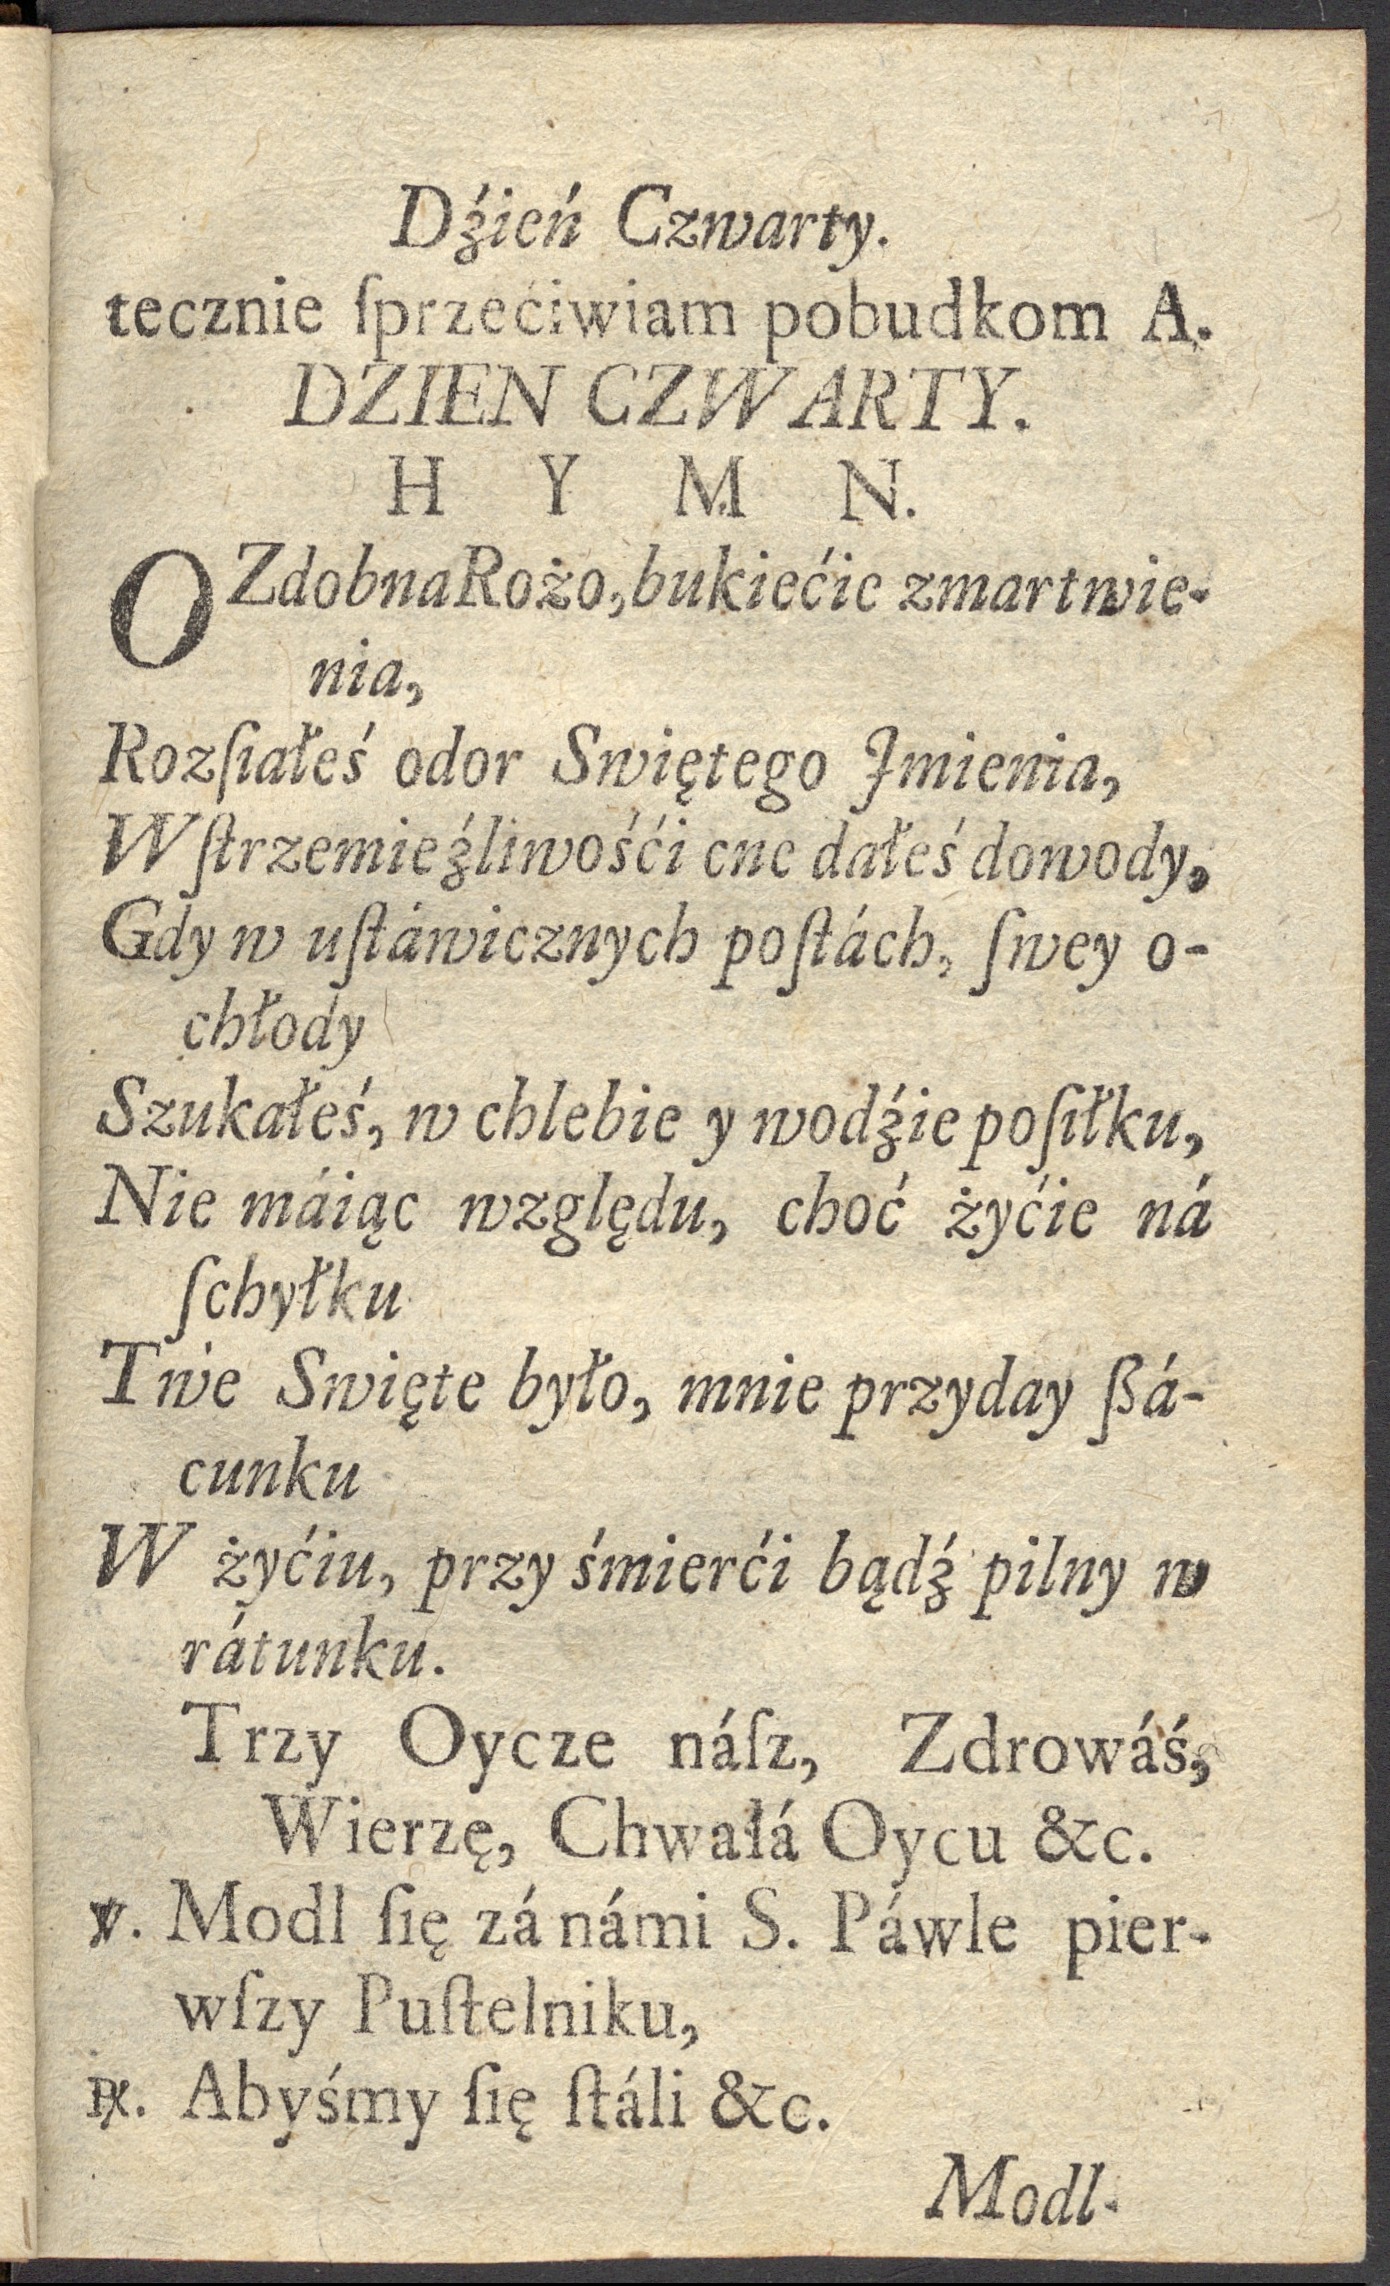 Dźień Czwarty.
tecznie ſprzećiwiam pobudkom A.
DZIEN CZWARTY.
H Y M N.
O Zdobna Rożo, bukiećie zmartwie-
nia,
Rozſiałeś odor Swiętego Jmienia,
Wſtrzemieźliwośći cne dałeś dowody,
Gdy w uſtáwicznych poſtách, ſwey o-
chłody
Szukałeś, w chlebie y wodźie poſiłku,
Nie máiąc względu, choć żyćie ná
ſchyłku
Twe Swięte było, mnie przyday ßá-
cunku
W żyćiu, przy śmierći bądź pilny w
rátunku.
Trzy Oycze náſz, Zdrowáś,
Wierzę, Chwałá Oycu &c.
℣. Modl ſię zá námi S. Páwle pier-
wſzy Puſtelniku,
℟. Abyśmy ſię ſtáli &c.
Modl-